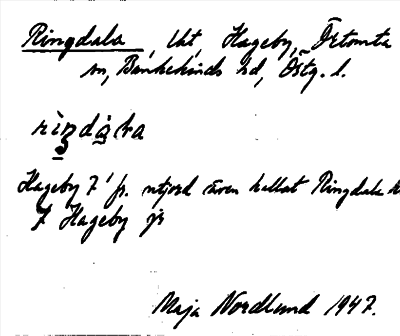 Ringdala, lht, Hageby, Örtomta
sn, Bankekinds hd, Östg. l.
rìŋdáƚa
Hageby 7' fr. utjord även kallat Ringdala
7 Hageby jr
Maja Nordlund 1947.